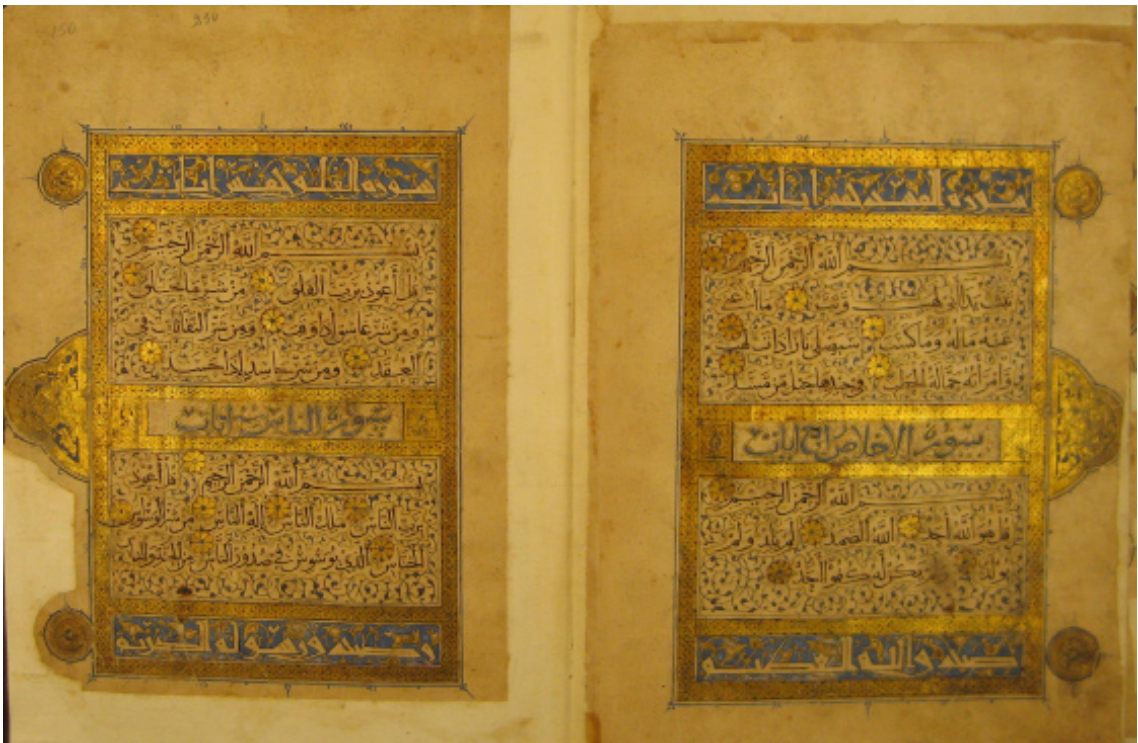 سورة المسد خمس ايات
بسم الله الرحمن الرحيم
تبت يدا ابي لهب وتب ما اغنى
عنه ماله وما كسب سيصلى نارا ذات لهب
وامراته حمالة الحطب في جيدها حبل من مسد
سورة الاخلاص ايات
بسم الله الرحمن الرحيم
قل هو الله احد الله الصمد لم يلد ولم
يولد ولم يكن له كفوا احد
صدق الله العظيم
250
سورة الفلق خمس ايات
بسم الله الرحمن الرحيم
قل أعوذ برب الفلق من شر ما خلق
ومن شر غاسق اذا وقب ومن شر النفاثات في
العقد ومن شر حاسد إذا حسد
سورة الناس ست ايات
بسم الله الرحمن الرحيم قل أعوذ
برب الناس ملك الناس إله الناس من شر الوسواس
الخناس الذي يوسوس في صدور الناس من الجنة والناس
وصدق رسوله الكريم